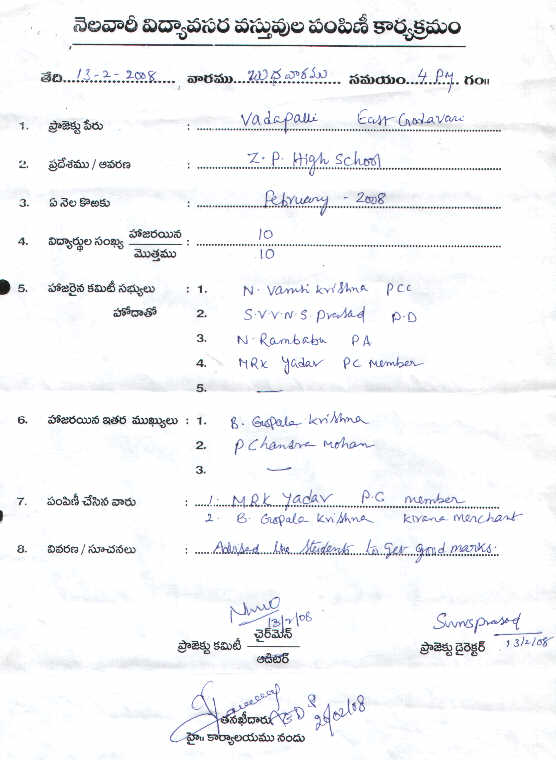 నెలవారీ విద్యావసర వస్తువుల పంపిణీ కార్యక్రమం
తేది...13-2-2008... వారము...బుధవారము... సమయం...4 PM...గం॥
1. ప్రాజెక్టు పేరు : Vadapalli East Godavari
2. ప్రదేశము / ఆవరణ : Z.P. High School
3. ఏ నెల కొఱకు : February - 2008
4. విద్యార్థుల సంఖ్య హాజరయిన : 10
మొత్తము 10
5. హాజరైన కమిటీ సభ్యులు : 1. N. Vamsi Krishna PCC
హోదాతో 2. S.V.V.N.S. Prasad P.D
3. N. Rambabu PA
4. MRK Yadav PC Member
5. —
6. హాజరయిన ఇతర ముఖ్యులు : 1. B. Gopala Krishna
2. P Chandra Mohan
3. —
7. పంపిణీ చేసిన వారు : 1. MRK Yadav P.C member
2. B. Gopala Krishna Kirana Merchant
8. వివరణ / సూచనలు : Advised the students to get good marks.
13/2/08
ప్రాజెక్టు కమిటీ చైర్‌మెన్
ఆడిటర్
Svvnsprasad
ప్రాజెక్టు డైరెక్టర్ 13/2/08
తనఖీదారు
20/02/08
హై॥ కార్యాలయము నందు